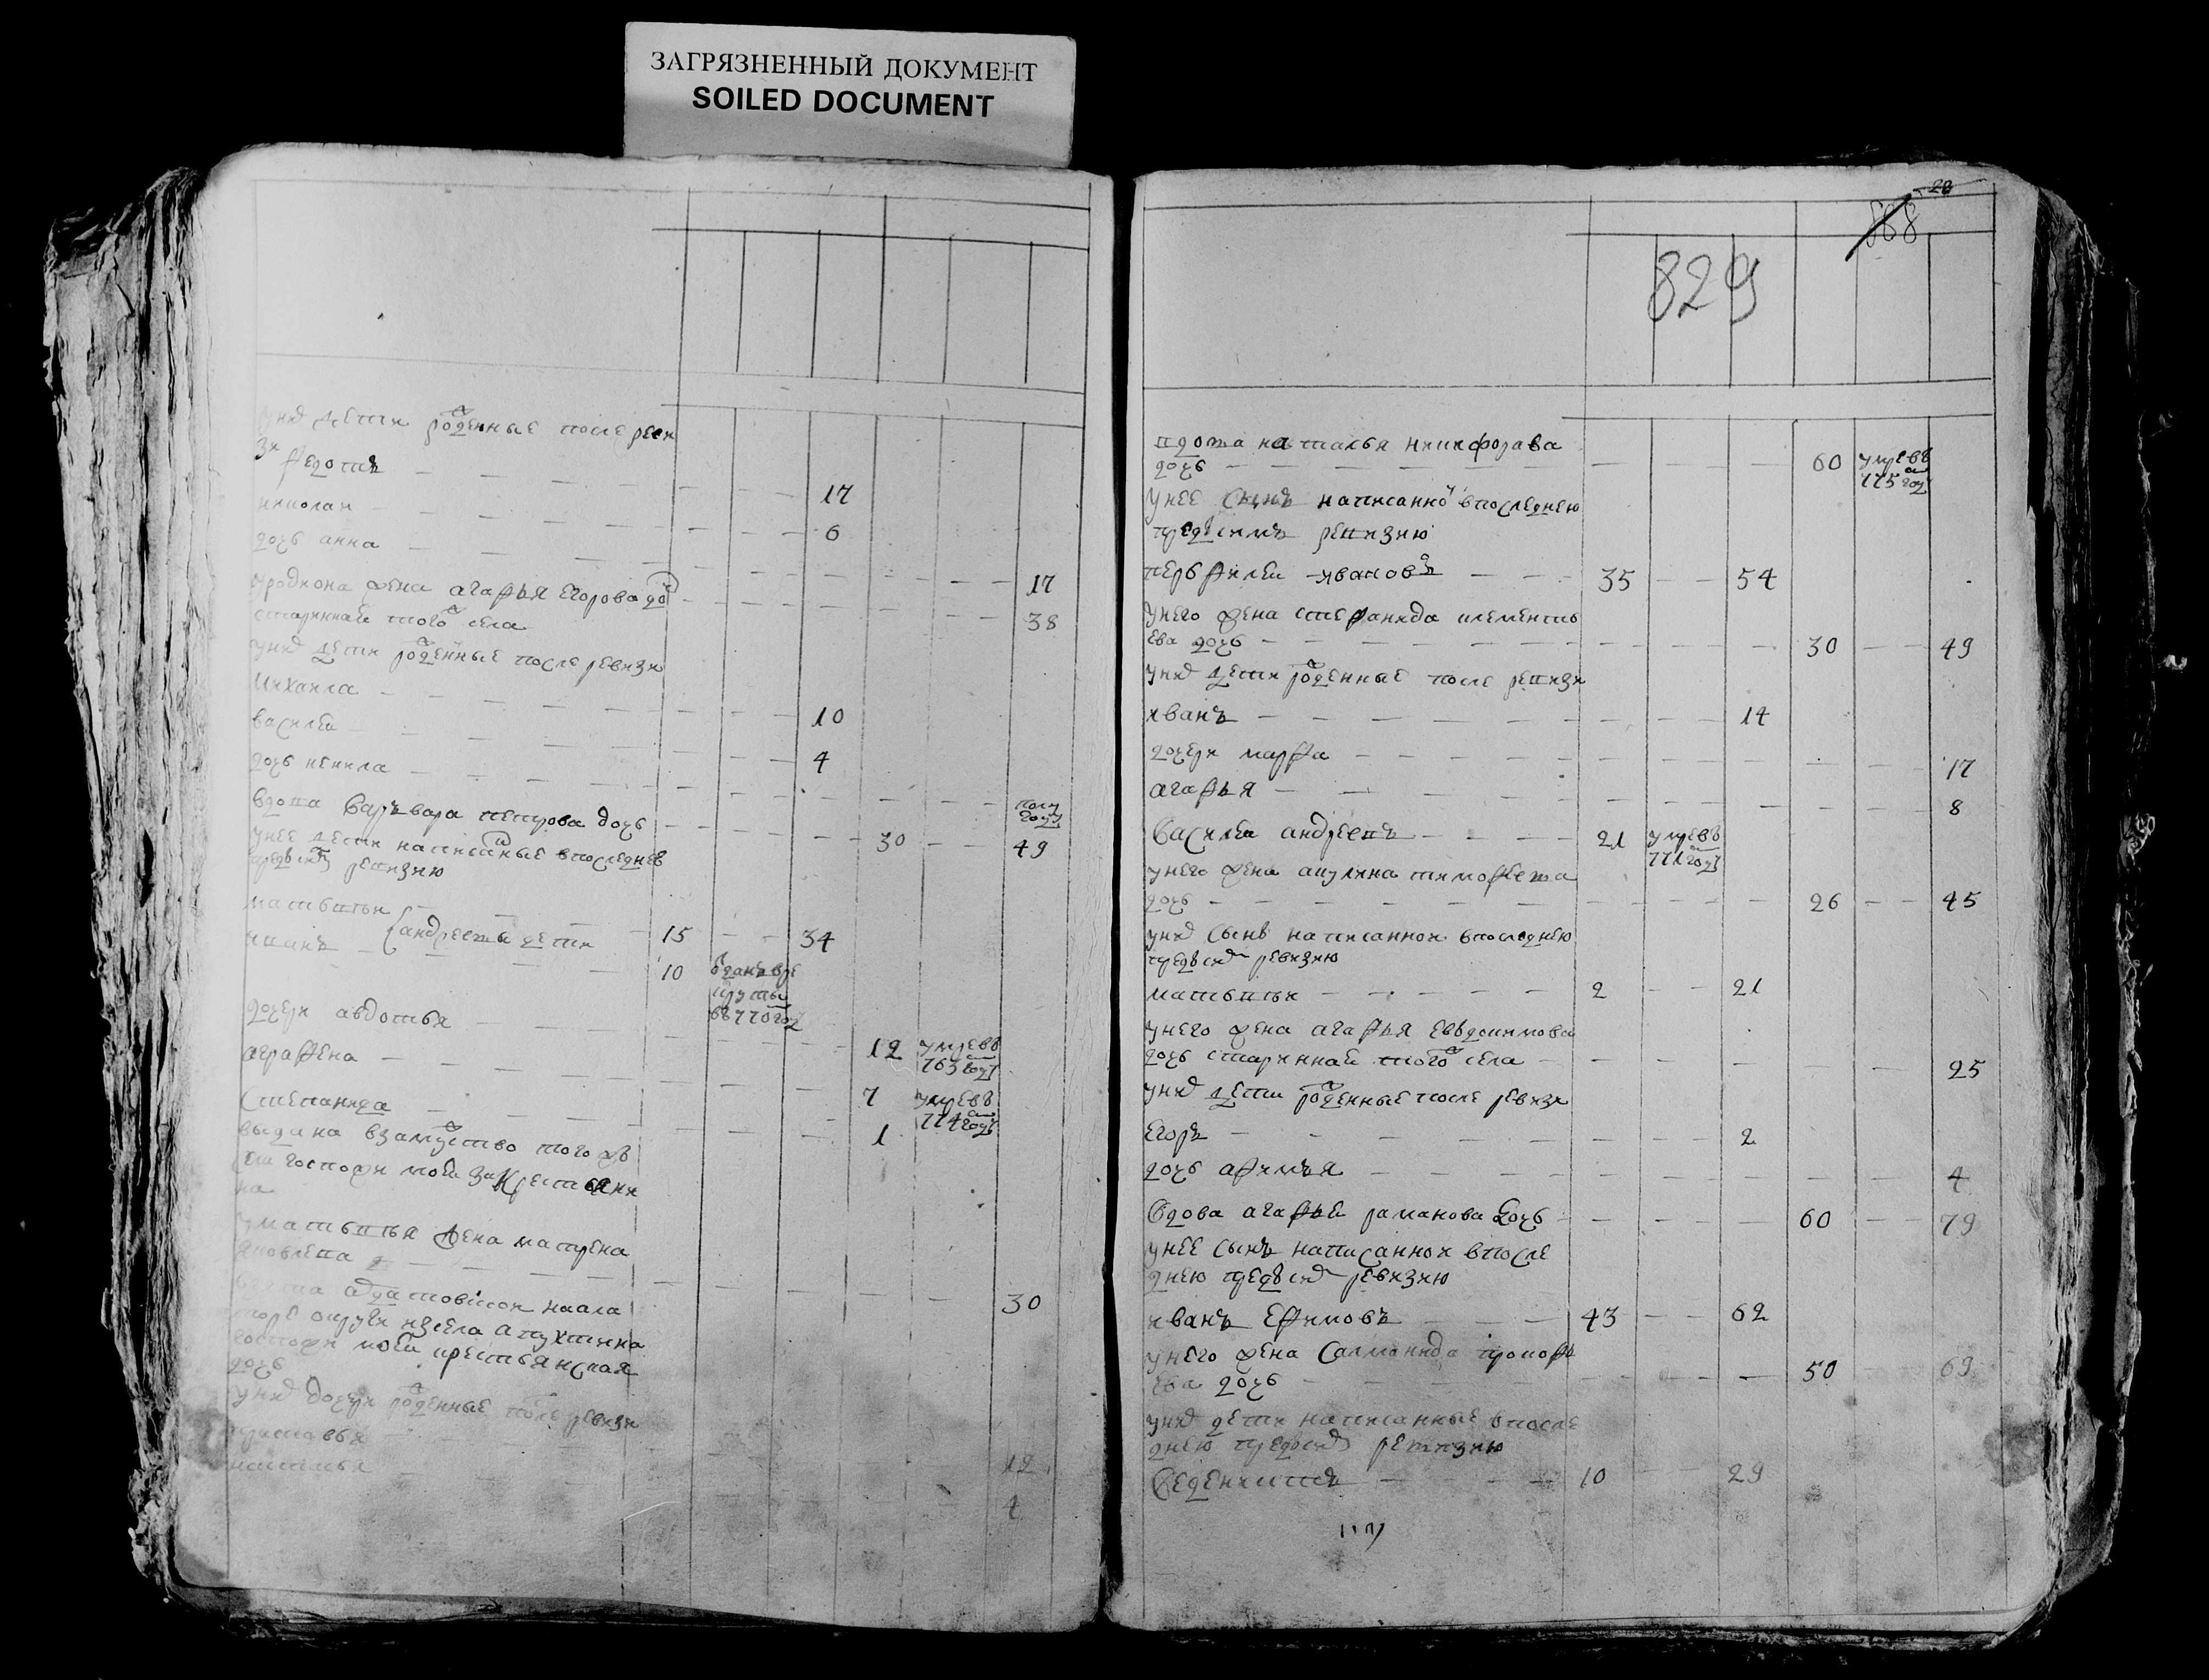 ЗАГРЯЗНЕННЫЙ ДОКУМЕНТ
SOILED DOCUMENT
у них дети рожденные после реви
зи федотъ 17
николаи 6
дочь анна 17
уродиона жена агафья егорова до
стариннаи того села 38
у них дети рожденные после ревизи
михаила 10
василеи 4
дочь ненила полу году
вдова варъвара петрова дочь 30 49
у нее дети написаные в последнев
пред сим ревизию
матьвеи 15 34
иванъ андреевы дети 10 отданъ в ре
круты
въ 770 году
дочери авдотья 12 умре въ
763 году
аграфена 7 умре въ
774 году
степанида 1
выдана в замужство того ж
господи моеи за крестьяни
на
у матьвея жена матрена
яковлева 30
округи из села апухтина
господи моеи крестьянская
дочь
у них дочери рожденные после ревизи
12
наталья 4
28
588
829
вдова наталья никифорава
дочь 60 умре въ
775 году
у нее сынъ написанно в последнею
пред симъ ревизию
перфилеи ивановъ 35 54
у него жена стефанида клементь
ева дочь 30 49
у них дети рожденные после ревизи
иванъ 14
дочери марфа 17
агафья 8
василеи андреевъ 21 умре въ
771 году
у него жена акулина тимофеева
дочь 26 45
у них сынъ написаннои в последнею
пред сим ревизию
матьвеи 2 21
у него жена агафья евъдокимова
дочь стариннаи того села 25
у них дети рожденные после ревизи
егоръ 2
дочь афимья 4
вдова агафьи раманова дочь 60 79
у нее сынъ написаннои в после
днею пред сим ревизию
иванъ ефимовъ 43 62
у него жена саламанида прокофь
ева дочь 50 69
у них дети написанные в после
днею пред сим ревизию
веденихтъ 10 29